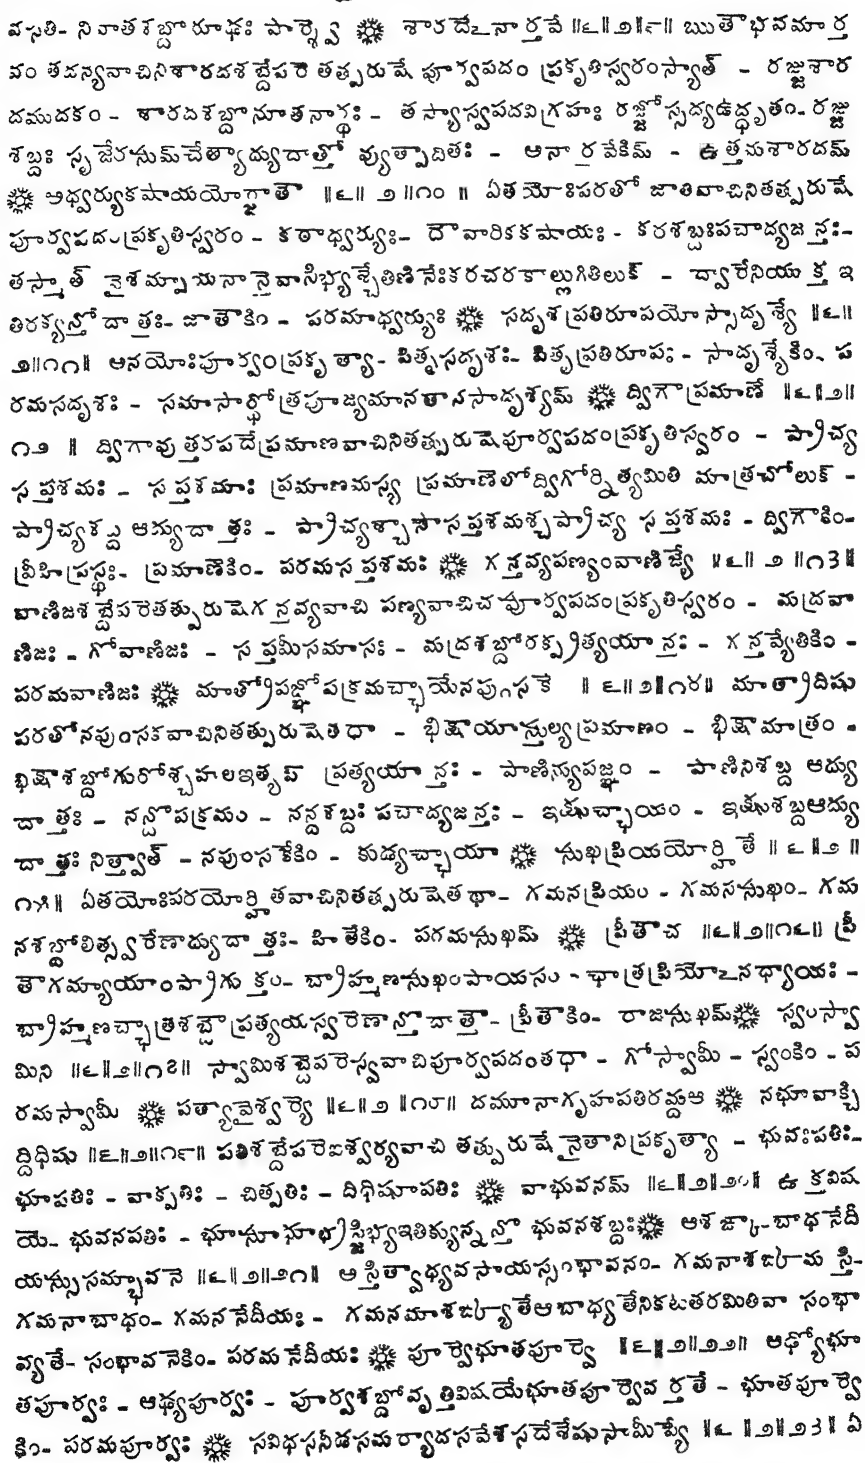 వసతి- నివాతశబ్దోరూఢః పార్శ్వే ❋ శారదేఽనార్తవే ||౬||౨||౯|| ఋతౌభవమార్త
వం తదన్యవాచినిశారదశబ్దేపరే తత్పురుషే పూర్వపదం ప్రకృతిస్వరంస్యాత్ - రజ్జుశార
దముదకం - శారదశబ్దోనూతనార్థః - తస్యాస్వపదవిగ్రహః రజ్జోస్సద్యఉద్ధృతం- రజ్జు
శబ్దః సృజేరసుమ్‌చేత్యాద్యుదాత్తో వ్యుత్పాదితః - ఆనార్తవేకిమ్ - ఉత్తమశారదమ్
❋ అధ్వర్యుకషాయయోర్జాతౌ ||౬|| ౨ ||౧౦ || ఏతయోఃపరతో జాతివాచినితత్పురుషే
పూర్వపదంప్రకృతిస్వరం - కఠాధ్వర్యుః- దౌవారికకషాయః - కఠశబ్దఃపచాద్యజన్తః-
తస్మాత్ వైశమ్పాయనాన్తేవాసిభ్యశ్చేతిణినేఃకఠచరకాల్లుగితిలుక్ - ద్వారేనియుక్త ఇ
తిఠక్యన్తోదాత్తః- జాతౌకిం - పరమాధ్వర్యుః ❋ సదృశప్రతిరూపయోస్సాదృశ్యే ||౬||
౨||౧౧|| ఆనయోఃపూర్వంప్రకృత్యా- పితృసదృశః- పితృప్రతిరూపః - సాదృశ్యేకిం- ప
రమసదృశః - సమాసార్థోత్రపూజ్యమానతానసాదృశ్యమ్ ❋ ద్విగౌప్రమాణే ||౬||౨||
౧౨ || ద్విగావుత్తరపదేప్రమాణవాచినితత్పురుషేపూర్వపదంప్రకృతిస్వరం - ప్రాచ్య
సప్తశమః - సప్తశమాః ప్రమాణమస్య ప్రమాణేలోద్విగోర్నిత్యమితి మాత్రచోలుక్ -
ప్రాచ్యశబ్ద ఆద్యుదాత్తః - ప్రాచ్యశ్చాసౌసప్తశమశ్చప్రాచ్య సప్తశమః - ద్విగౌకిం-
వ్రీహిప్రస్థః- ప్రమాణేకిం- పరమసప్తశమః ❋ గన్తవ్యపణ్యంవాణిజ్యే ||౬|| ౨ ||౧౩||
వాణిజశబ్దేపరేతత్పురుషేగన్తవ్యవాచి పణ్యవాచిచపూర్వపదంప్రకృతిస్వరం - మద్రవా
ణిజః - గోవాణిజః - సప్తమీసమాసః - మద్రశబ్దోరక్ప్రత్యయాన్తః - గన్తవ్యేతికిం-
పరమవాణిజః ❋ మాత్రోపజ్ఞోపక్రమచ్ఛాయేనపుంసకే || ౬||౨||౧౪|| మాత్రాదిషు
పరతోనపుంసకవాచినితత్పురుషేతథా - భిక్షాయాస్తుల్యప్రమాణం - భిక్షామాత్రం -
భిక్షాశబ్దోగురోశ్చహలఇత్యప్ ప్రత్యయాన్తః - పాణిన్యుపజ్ఞం - పాణినిశబ్ద ఆద్యు
దాత్తః - నన్దోపక్రమం - నన్దశబ్దః పచాద్యజన్తః - ఇక్షుచ్ఛాయం - ఇక్షుశబ్దఆద్యు
దాత్తః నిత్త్వాత్ - నపుంసకేకిం - కుడ్యచ్ఛాయా ❋ సుఖప్రియయోర్హితే || ౬||౨||
౧౫|| ఏతయోఃపరయోర్హితవాచినితత్పురుషేతథా- గమనప్రియం - గమనసుఖం- గమ
నశబ్దోలిత్స్వరేణాద్యుదాత్తః- హితేకిం- పరమసుఖమ్ ❋ ప్రీతౌచ ||౬||౨||౧౬|| ప్రీ
తౌగమ్యాయాంప్రాగుక్తం- బ్రాహ్మణసుఖంపాయసం - ఛాత్రప్రియోఽనధ్యాయః -
బ్రాహ్మణచ్ఛాత్రశబ్దౌప్రత్యయస్వరేణాన్తోదాత్తౌ- ప్రీతౌకిం- రాజసుఖమ్❋ స్వంస్వా
మిని ||౬||౨||౧౭|| స్వామిశబ్దేపరేస్వవాచిపూర్వపదంతథా - గోస్వామీ - స్వంకిం - ప
రమస్వామీ ❋ పత్యావైశ్వర్యే ||౬||౨ ||౧౮|| దమూనాగృహపతిరమ్దఆ ❋ నభూవాక్చి
ద్దిధిషు ||౬||౨||౧౯|| పతిశబ్దేపరేఐశ్వర్యవాచి తత్పురుషే నైతానిప్రకృత్యా - భువఃపతిః-
భూపతిః - వాక్పతిః - చిత్పతిః - దిధిషూపతిః ❋ వాభువనమ్ ||౬||౨||౨౦|| ఉక్తవిష
యే- భువనపతిః - భూసూధూభ్రస్జిభ్యఇతిక్యున్నన్తో భువనశబ్దః❋ ఆశఙ్కా-బాధనేదీ
యస్సుసమ్భావనే ||౬||౨||౨౧|| అస్తిత్వాధ్యవసాయస్సంభావనం- గమనాశఙ్కమస్తి-
గమనాబాధం- గమననేదీయః - గమనమాశఙ్క్యతేఆబాధ్యతేనికటతరమితివా సంభా
వ్యతే- సంభావనేకిం- పరమనేదీయః ❋ పూర్వేభూతపూర్వే ||౬||౨||౨౨|| ఆఢ్యోభూ
తపూర్వః - ఆఢ్యపూర్వః - పూర్వశబ్దోవృత్తివిషయేభూతపూర్వేవర్తతే - భూతపూర్వే
కిం- పరమపూర్వః ❋ సవిధసనీడసమర్యాదసవేశసదేశేషుసామీప్యే ||౬ ||౨||౨౩|| ఏ